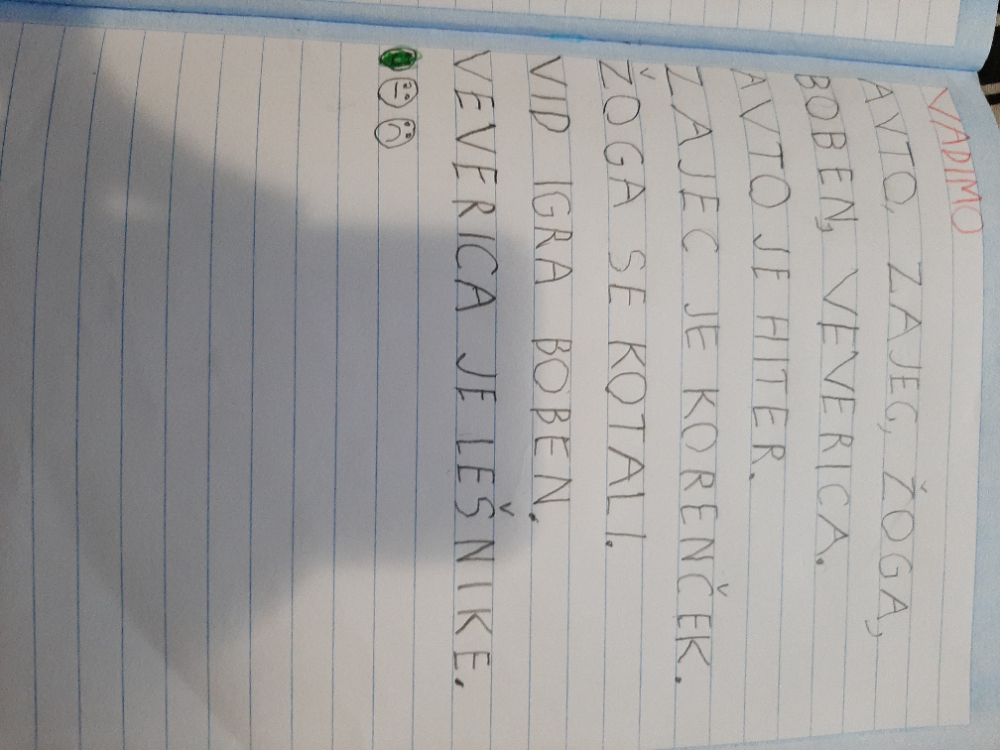 VADIMO
AVTO, ZAJEC, ŽOGA,
BOBEN, VEVERICA.
AVTO JE HITER.
ZAJEC JE KORENČEK.
ŽOGA SE KOTALI.
VID IGRA BOBEN.
VEVERICA JE LEŠNIKE.